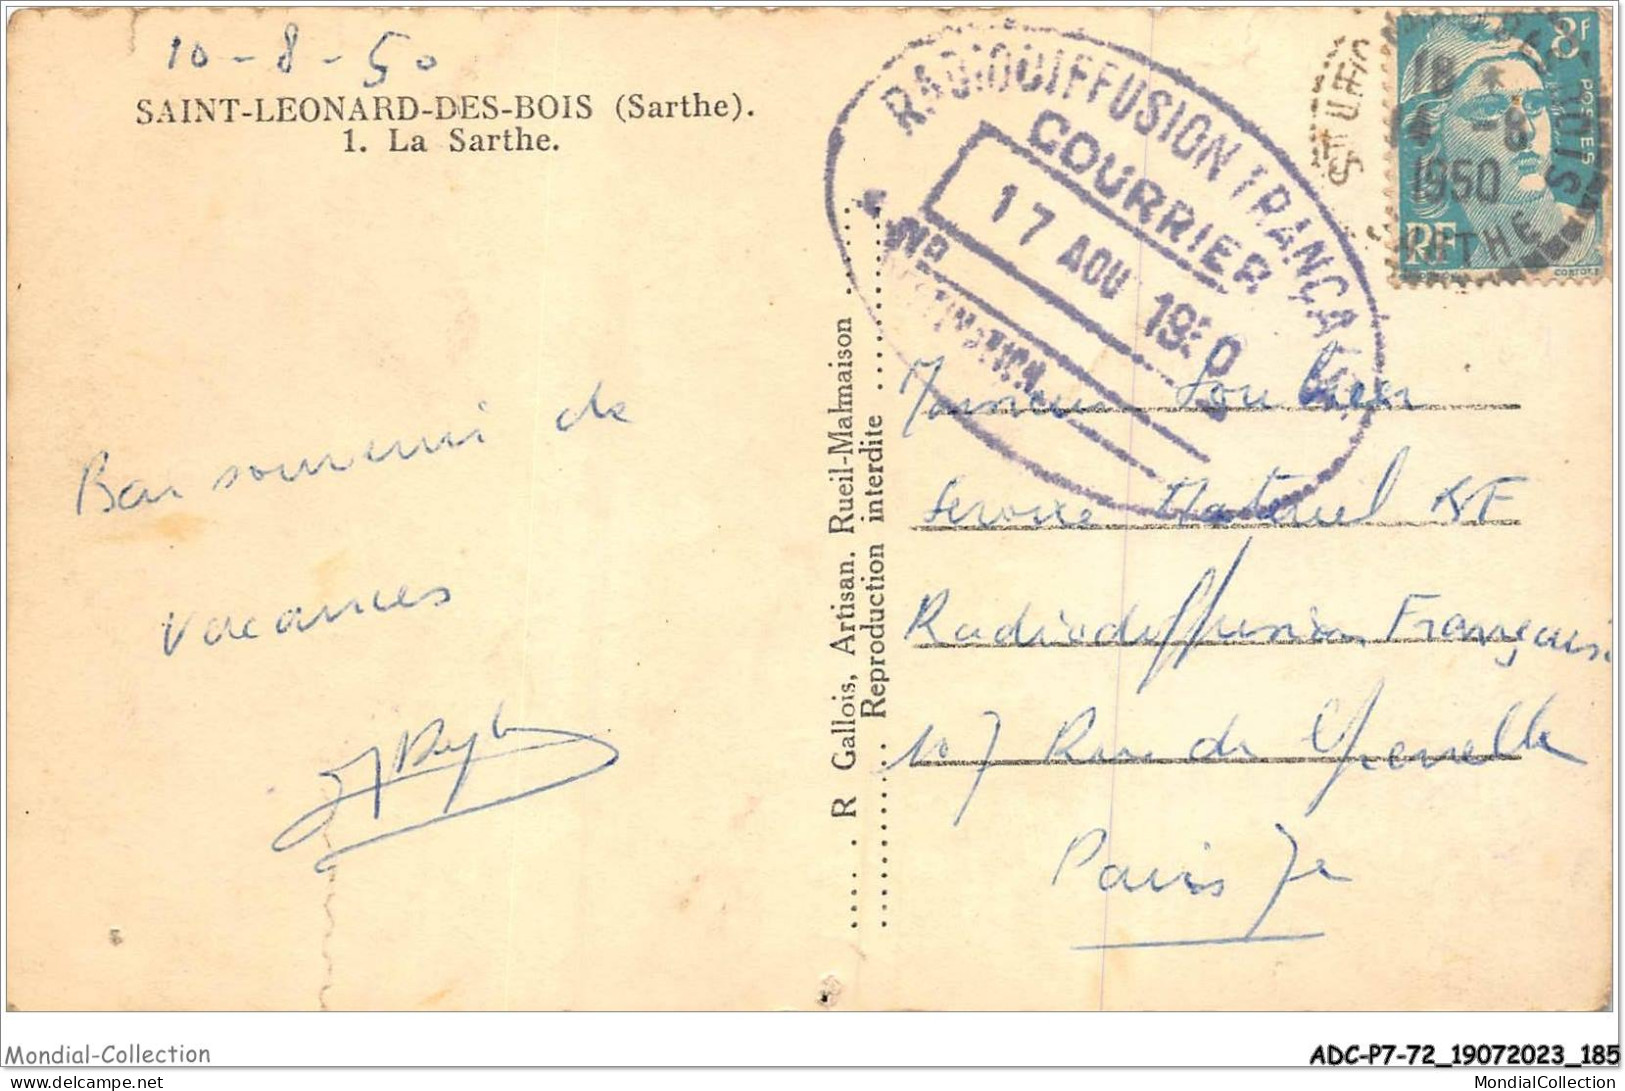 10-8-50
SAINT-LEONARD-DES-BOIS (Sarthe).
1. La Sarthe.
Bon souvenir de
vacances
R Gallois, Artisan. Rueil-Malmaison
Reproduction interdite
RADIODIFFUSION FRANÇAISE
COURRIER
17 AOU 1950
No
DESTINATION
8F
POSTES
RF
18
-8
1950
SARTHE
Monsieur
Service Matériel RF
Radiodiffusion Française
107 Rue de Grenelle
Paris 7e
Mondial-Collection
ADC-P7-72_19072023_185
andree64.com
MondialCollection